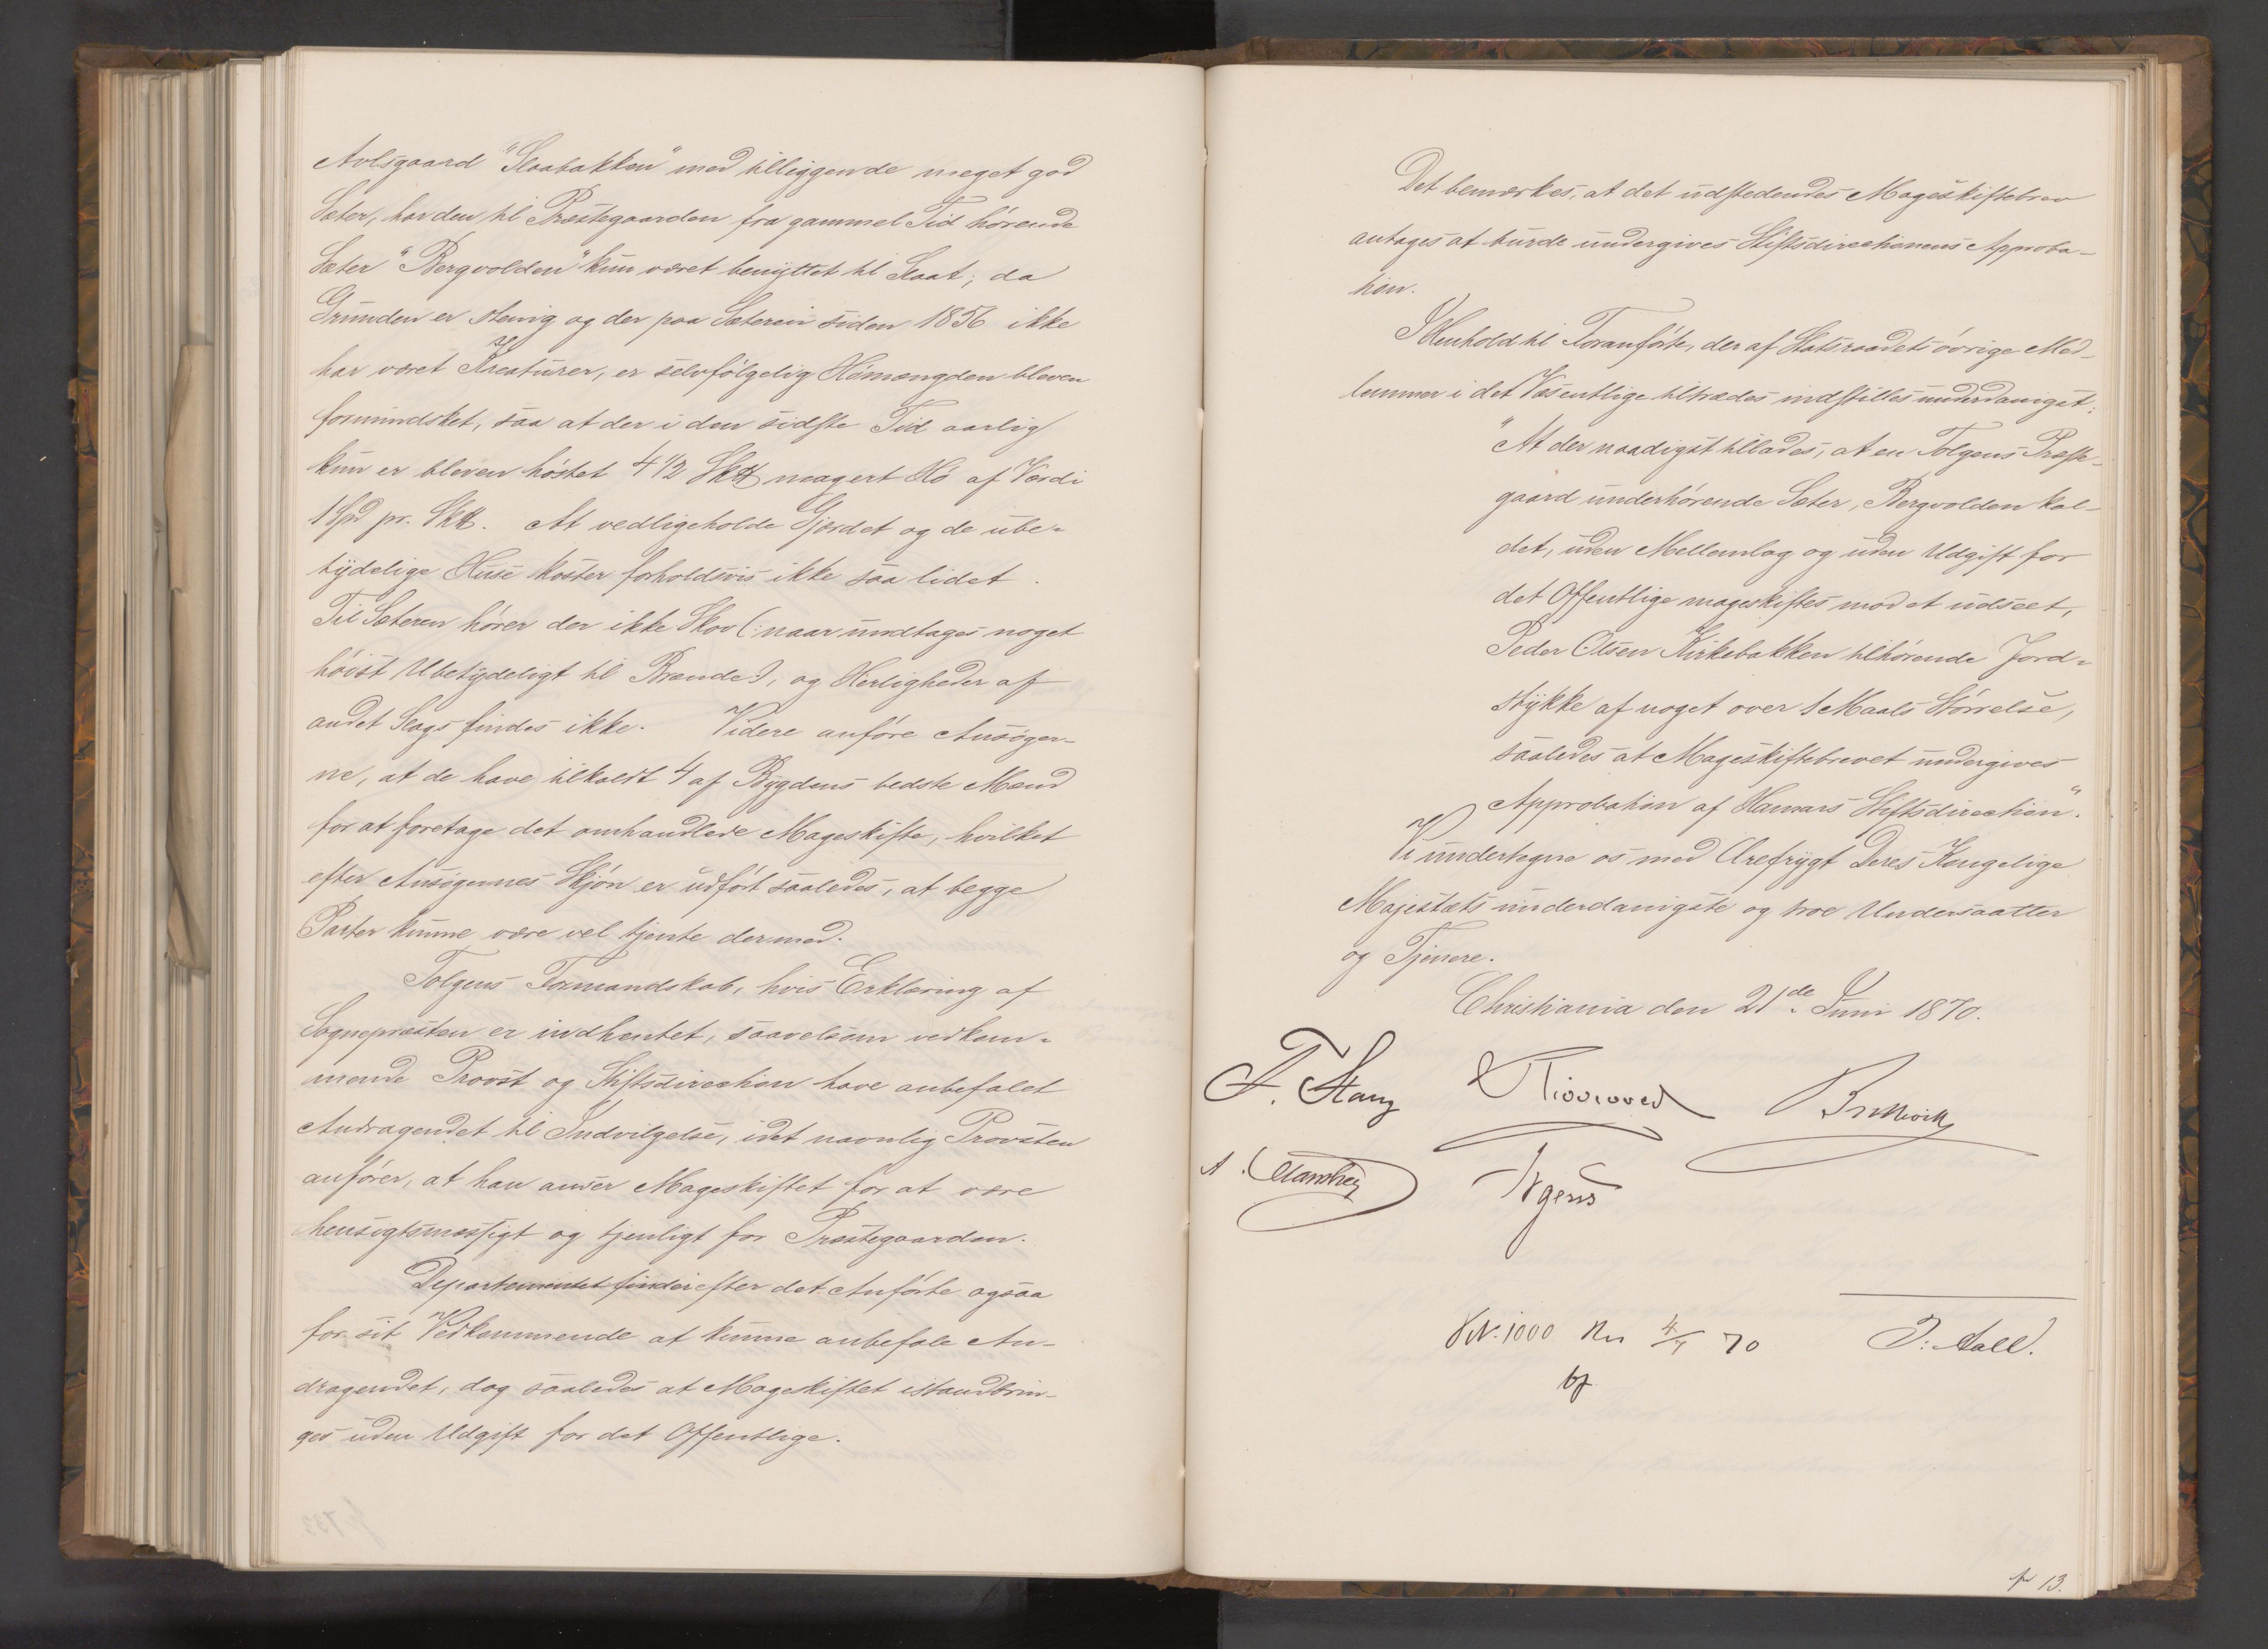 Avlsgaard "Slaabakken" med tilliggende meget god
Sæter, har den til Præstegaarden fra gammel Tid hørende
Sæter "Bergvolden" kun været benyttet til Slaat; da
Grunden er stenig og der paa Sæteren siden 1856 ikke
har været Kreaturer, er selvfølgelig Hømængden bleven
formindsket, saa at der i den sidste Tid aarlig
kun er bleven høstet 4 1/2 Sk℔ magert Hø af Værdi
1 Spd pr. Sk℔. At vedligeholde Gjærdet og de ube-
tydelige Huse koster forholdsvis ikke saa lidet.
Til Sæteren hører der ikke Skov (: naar undtages noget
høist Ubetydeligt til Brænde :), og Herligheder af
andet Slags findes ikke. Videre anføre Ansøger-
ne, at de have tilkaldt 4 af Bygdens bedste Mænd
for at foretage det omhandlede Mageskifte, hvilket
efter Ansøgernes Skjøn er udført saaledes, at begge
Parter kunne være vel tjente dermed.
Tolgens Formandskab, hvis Erklæring af
Sognepræsten er indhentet, saavelsom vedkom-
mende Provst og Stiftsdirection have anbefalet
Andragendet til Indvilgelse, idet navnlig Provsten
anfører, at han anser Mageskiftet for at være
hensigtsmæssigt og tjenligt for Præstegaarden.
Departementet finder efter det Anførte ogsaa
for sit Vedkommende at kunne anbefale An-
dragendet, dog saaledes at Mageskiftet istandbrin-
ges uden Udgift for det Offentlige.
Det bemærkes, at det udstedendes Mageskiftebrev
antages at burde undergives Stiftsdirectionens Approba-
tion.
I Henhold til Foranførte, der af Statsraadets øvrige Med-
lemmer i det Væsentlige tiltrædes indstilles underdanigst:
"At der naadigst tillades, at en Tolgens Præste-
gaard underhørende Sæter, Bergvolden kal-
det, uden Mellemlag og uden Udgift for
det Offentlige mageskiftes mod et udseet,
Peder Olsen Kirkebakken tilhørende Jord-
stykke af noget over 1 Maals Størrelse,
saaledes at Mageskiftebrevet undergives
Approbation af Hamars Stiftsdirection".
Vi undertegne os med Ærefrygt Deres Kongelige
Majestæts underdanigste og troe Undersaatter
og Tjenere.
Christiania den 21de Juni 1870.
F. Stang
A.
J: Aall.
1000
70
13.